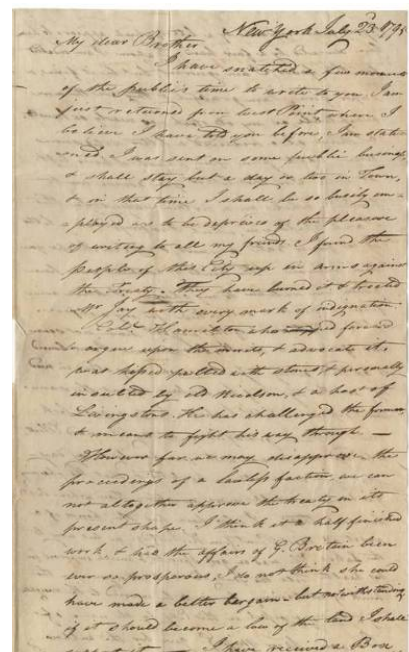 New York July 23d. 1795
My dear Brother
I have snatched a few moments
of the public's time to write to you. I am
just returned from West Point where I
believe I have told you before, I am stati-
oned. I was sent on some public business,
& shall stay but a day or two in Town,
& in that time I shall be so busily em-
ployed as to be deprived of the pleasure
of writing to all my friends. I found the
people of this City up in arms against
the treaty. They have burned it & treated
Mr Jay with every mark of indignation.
Colo. Hamilton who forward
to argue upon the merits, & advocate it,
was pelted with stones, & personally
insulted by old & a host of
Livingstons. He has challenged the former,
& means to fight his way through —
However far we may disapprove the
proceedings of a lawless faction, we can
not altogether approve the treaty in its
present shape. I think it a half finished
work & had the affairs of G. Britain been
ever so prosperous, I do not think she could
have made a better bargain - but notwithstanding
if it should become a law of the land I shall
support it — I have received a Box